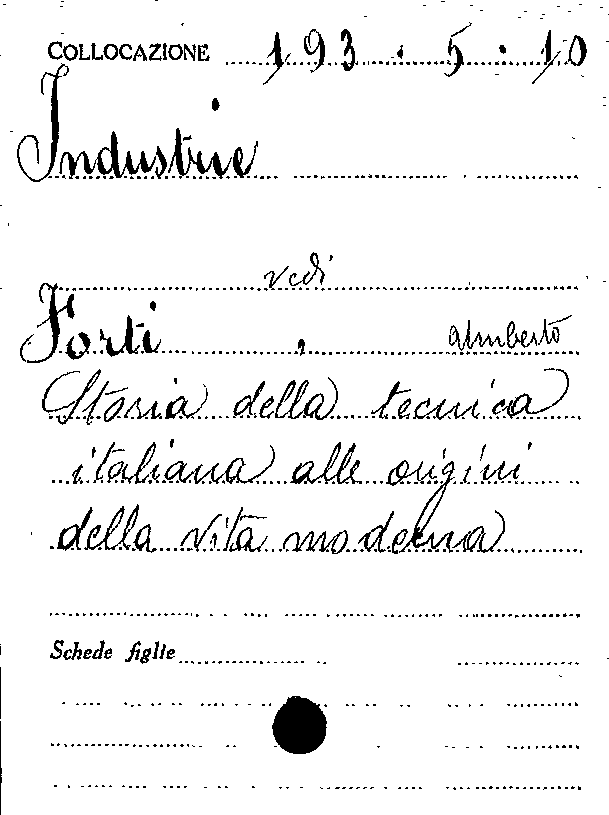 COLLOCAZIONE 193.5.10
Industrie
vedi
Forti, Umberto
Storia della tecnica
italiana alle origini
della vita moderna
Schede figlie